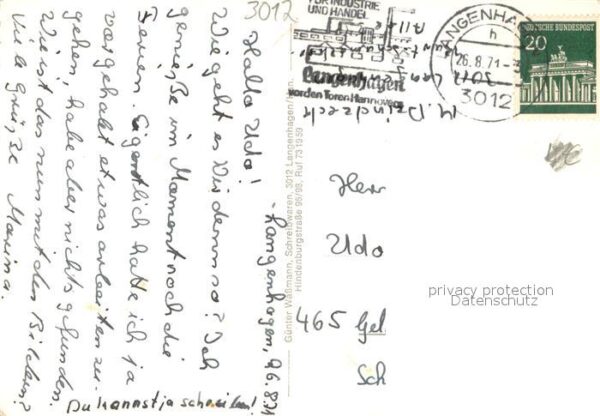 3012
FÜR INDUSTRIE
UND HANDEL
Langenhagen
vor den Toren Hannovers
LANGENHAGEN
h
26.8.71
3012
DEUTSCHE BUNDESPOST
20
M. Dzindzech
3012 Lang
- Langenhagen, 26.8.71
Hallo Udo!
Wie geht es Dir denn so? Ich
genieße im Moment noch die
Ferien. Eigentlich hatte ich ja
vorgehabt etwas arbeiten zu
gehen, habe aber nichts gefunden.
Wie ist das nun mit den Bildern?
Viele Grüße Marina.
Du kannst ja schreiben!
Günter Waßmann, Schreibwaren, 3012 Langenhagen/Han.
Hindenburgstraße 96/98, Ruf 731959
Herr
Udo
465 Gel
Sch
privacy protection
Datenschutz